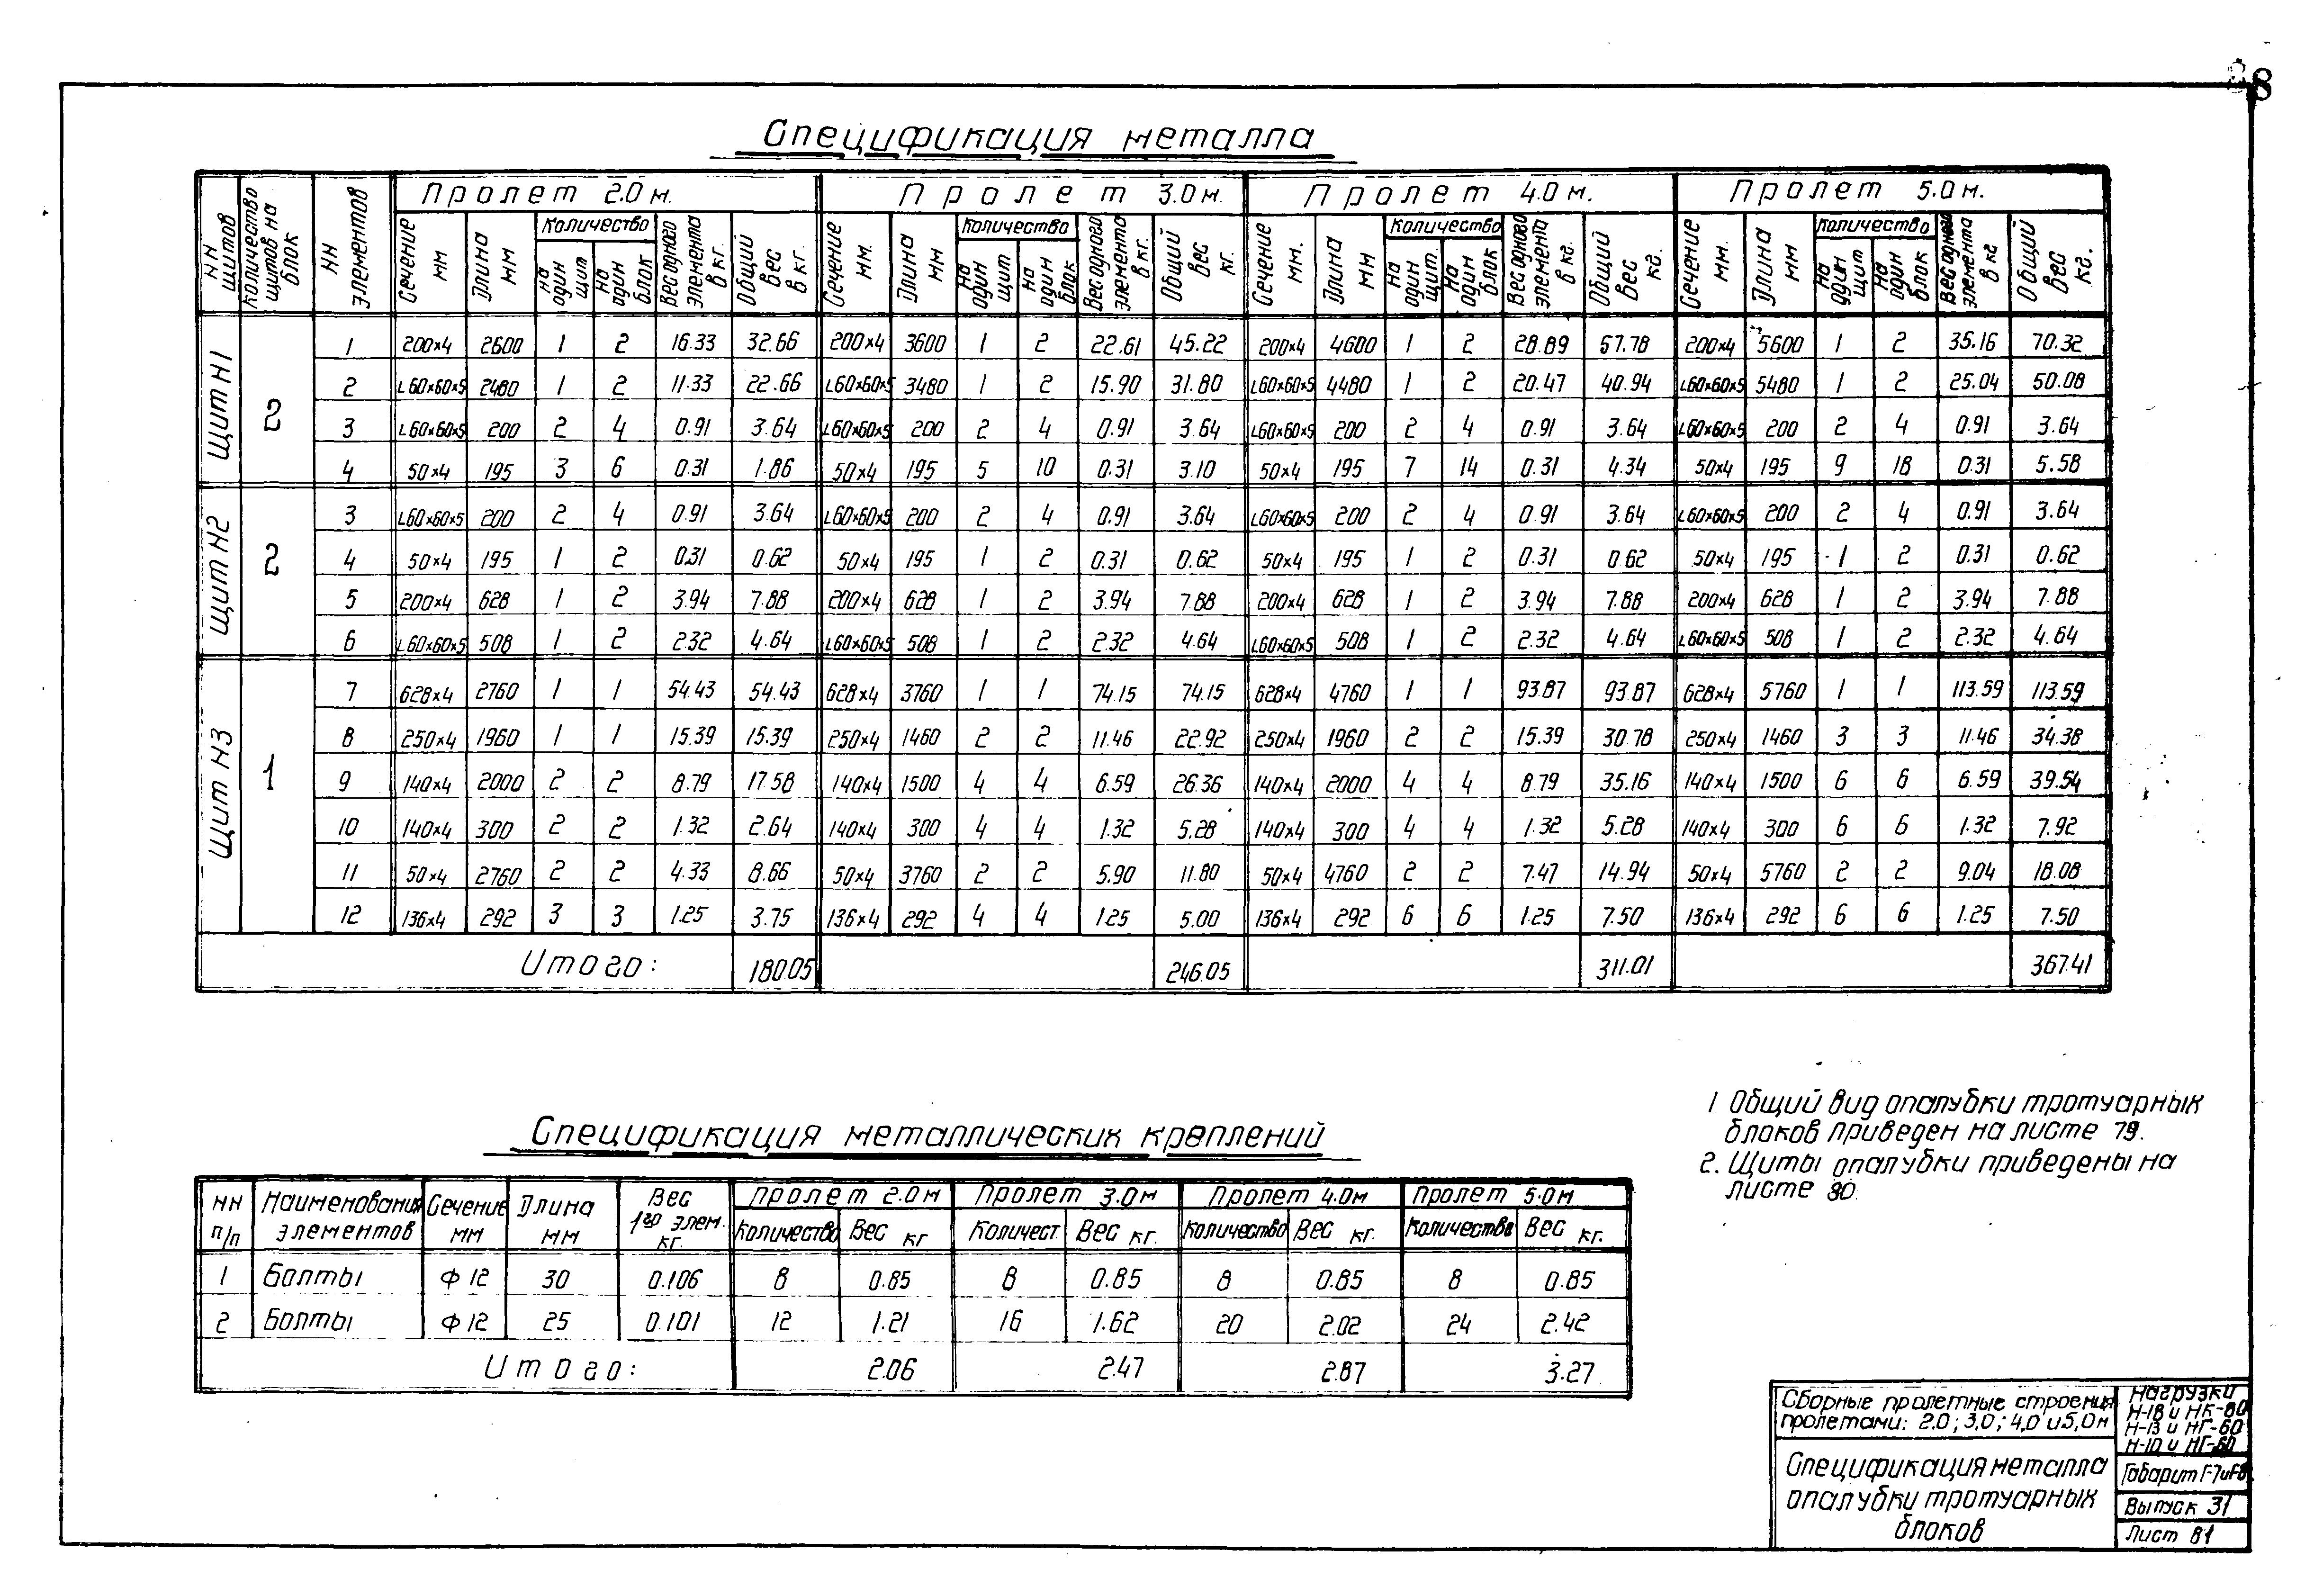 8
Спецификация металла
НН щитов | Количество щитов на блок | НН элементов | Пролет 2.0 м. | Пролет 3.0 м. | Пролет 4.0 м. | Пролет 5.0 м.
Сечение мм | Длина мм | Количество на один щит | на один блок | Вес одного элемента в кг. | Общий вес в кг. | Сечение мм. | Длина мм | Количество на один щит | на один блок | Вес одного элемента в кг. | Общий вес кг. | Сечение мм. | Длина мм | Количество на один щит. | на один блок | Вес одного элемента в кг. | Общий вес кг. | Сечение мм. | Длина мм | Количество на один щит | на один блок | Вес одного элемента в кг | Общий вес кг.
Щит Н1 | 2 | 1 | 200×4 | 2600 | 1 | 2 | 16.33 | 32.66 | 200×4 | 3600 | 1 | 2 | 22.61 | 45.22 | 200×4 | 4600 | 1 | 2 | 28.89 | 57.78 | 200×4 | 5600 | 1 | 2 | 35.16 | 70.32
2 | L60×60×5 | 2480 | 1 | 2 | 11.33 | 22.66 | L60×60×5 | 3480 | 1 | 2 | 15.90 | 31.80 | L60×60×5 | 4480 | 1 | 2 | 20.47 | 40.94 | L60×60×5 | 5480 | 1 | 2 | 25.04 | 50.08
3 | L60×60×5 | 200 | 2 | 4 | 0.91 | 3.64 | L60×60×5 | 200 | 2 | 4 | 0.91 | 3.64 | L60×60×5 | 200 | 2 | 4 | 0.91 | 3.64 | L60×60×5 | 200 | 2 | 4 | 0.91 | 3.64
4 | 50×4 | 195 | 3 | 6 | 0.31 | 1.86 | 50×4 | 195 | 5 | 10 | 0.31 | 3.10 | 50×4 | 195 | 7 | 14 | 0.31 | 4.34 | 50×4 | 195 | 9 | 18 | 0.31 | 5.58
Щит Н2 | 2 | 3 | L60×60×5 | 200 | 2 | 4 | 0.91 | 3.64 | L60×60×5 | 200 | 2 | 4 | 0.91 | 3.64 | L60×60×5 | 200 | 2 | 4 | 0.91 | 3.64 | L60×60×5 | 200 | 2 | 4 | 0.91 | 3.64
4 | 50×4 | 195 | 1 | 2 | 0.31 | 0.62 | 50×4 | 195 | 1 | 2 | 0.31 | 0.62 | 50×4 | 195 | 1 | 2 | 0.31 | 0.62 | 50×4 | 195 | 1 | 2 | 0.31 | 0.62
5 | 200×4 | 628 | 1 | 2 | 3.94 | 7.88 | 200×4 | 628 | 1 | 2 | 3.94 | 7.88 | 200×4 | 628 | 1 | 2 | 3.94 | 7.88 | 200×4 | 628 | 1 | 2 | 3.94 | 7.88
6 | L60×60×5 | 508 | 1 | 2 | 2.32 | 4.64 | L60×60×5 | 508 | 1 | 2 | 2.32 | 4.64 | L60×60×5 | 508 | 1 | 2 | 2.32 | 4.64 | L60×60×5 | 508 | 1 | 2 | 2.32 | 4.64
Щит Н3 | 1 | 7 | 628×4 | 2760 | 1 | 1 | 54.43 | 54.43 | 628×4 | 3760 | 1 | 1 | 74.15 | 74.15 | 628×4 | 4760 | 1 | 1 | 93.87 | 93.87 | 628×4 | 5760 | 1 | 1 | 113.59 | 113.59
8 | 250×4 | 1960 | 1 | 1 | 15.39 | 15.39 | 250×4 | 1460 | 2 | 2 | 11.46 | 22.92 | 250×4 | 1960 | 2 | 2 | 15.39 | 30.78 | 250×4 | 1460 | 3 | 3 | 11.46 | 34.38
9 | 140×4 | 2000 | 2 | 2 | 8.79 | 17.58 | 140×4 | 1500 | 4 | 4 | 6.59 | 26.36 | 140×4 | 2000 | 4 | 4 | 8.79 | 35.16 | 140×4 | 1500 | 6 | 6 | 6.59 | 39.54
10 | 140×4 | 300 | 2 | 2 | 1.32 | 2.64 | 140×4 | 300 | 4 | 4 | 1.32 | 5.28 | 140×4 | 300 | 4 | 4 | 1.32 | 5.28 | 140×4 | 300 | 6 | 6 | 1.32 | 7.92
11 | 50×4 | 2760 | 2 | 2 | 4.33 | 8.66 | 50×4 | 3760 | 2 | 2 | 5.90 | 11.80 | 50×4 | 4760 | 2 | 2 | 7.47 | 14.94 | 50×4 | 5760 | 2 | 2 | 9.04 | 18.08
12 | 136×4 | 292 | 3 | 3 | 1.25 | 3.75 | 136×4 | 292 | 4 | 4 | 1.25 | 5.00 | 136×4 | 292 | 6 | 6 | 1.25 | 7.50 | 136×4 | 292 | 6 | 6 | 1.25 | 7.50
Итого: | 180.05 | 246.05 | 311.01 | 367.41
1. Общий вид опалубки тротуарных
блоков приведен на листе 79.
2. Щиты опалубки приведены на
листе 80.
Спецификация металлических креплений
НН п/п | Наименования элементов | Сечение мм | Длина мм | Вес 1го элем. кг. | Пролет 2.0 м | Пролет 3.0 м | Пролет 4.0 м | Пролет 5.0 м
Количество | Вес кг | Количест. | Вес кг. | Количество | Вес кг. | Количество | Вес кг.
1 | Болты | Ф 12 | 30 | 0.106 | 8 | 0.85 | 8 | 0.85 | 8 | 0.85 | 8 | 0.85
2 | Болты | Ф 12 | 25 | 0.101 | 12 | 1.21 | 16 | 1.62 | 20 | 2.02 | 24 | 2.42
Итого: | 2.06 | 2.47 | 2.87 | 3.27
Сборные пролетные строения
пролетами: 2.0; 3,0; 4,0 и 5,0 м
Нагрузки
Н-18 и НК-80
Н-13 и НГ-60
Н-10 и НГ-60
Спецификация металла
опалубки тротуарных
блоков
Габарит Г-7 и Г-8
Выпуск 31
Лист 81